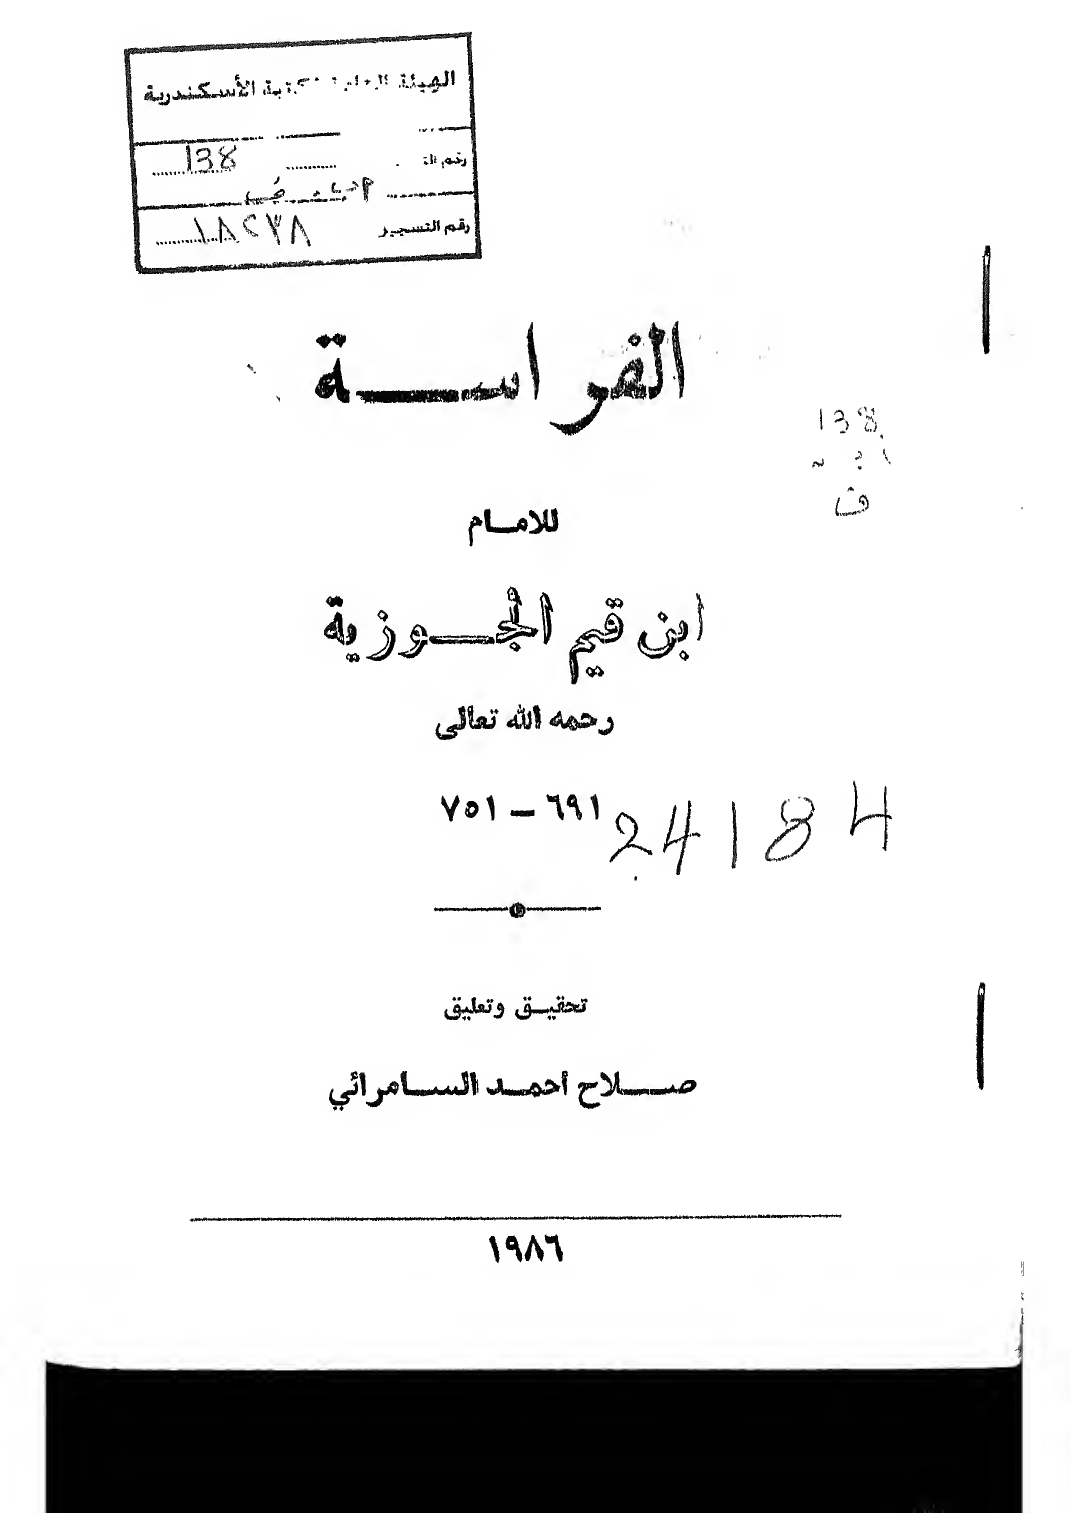 الهيئة العامة لمكتبة الأسكندرية
138
رقم التسجيل ١٨٢٣٨
الفراسة
138
ف
للامام
ابن قيم الجوزية
رحمه الله تعالى
٦٩١ – ٧٥١
24184
تحقيق وتعليق
صلاح أحمد السامرائي
١٩٨٦